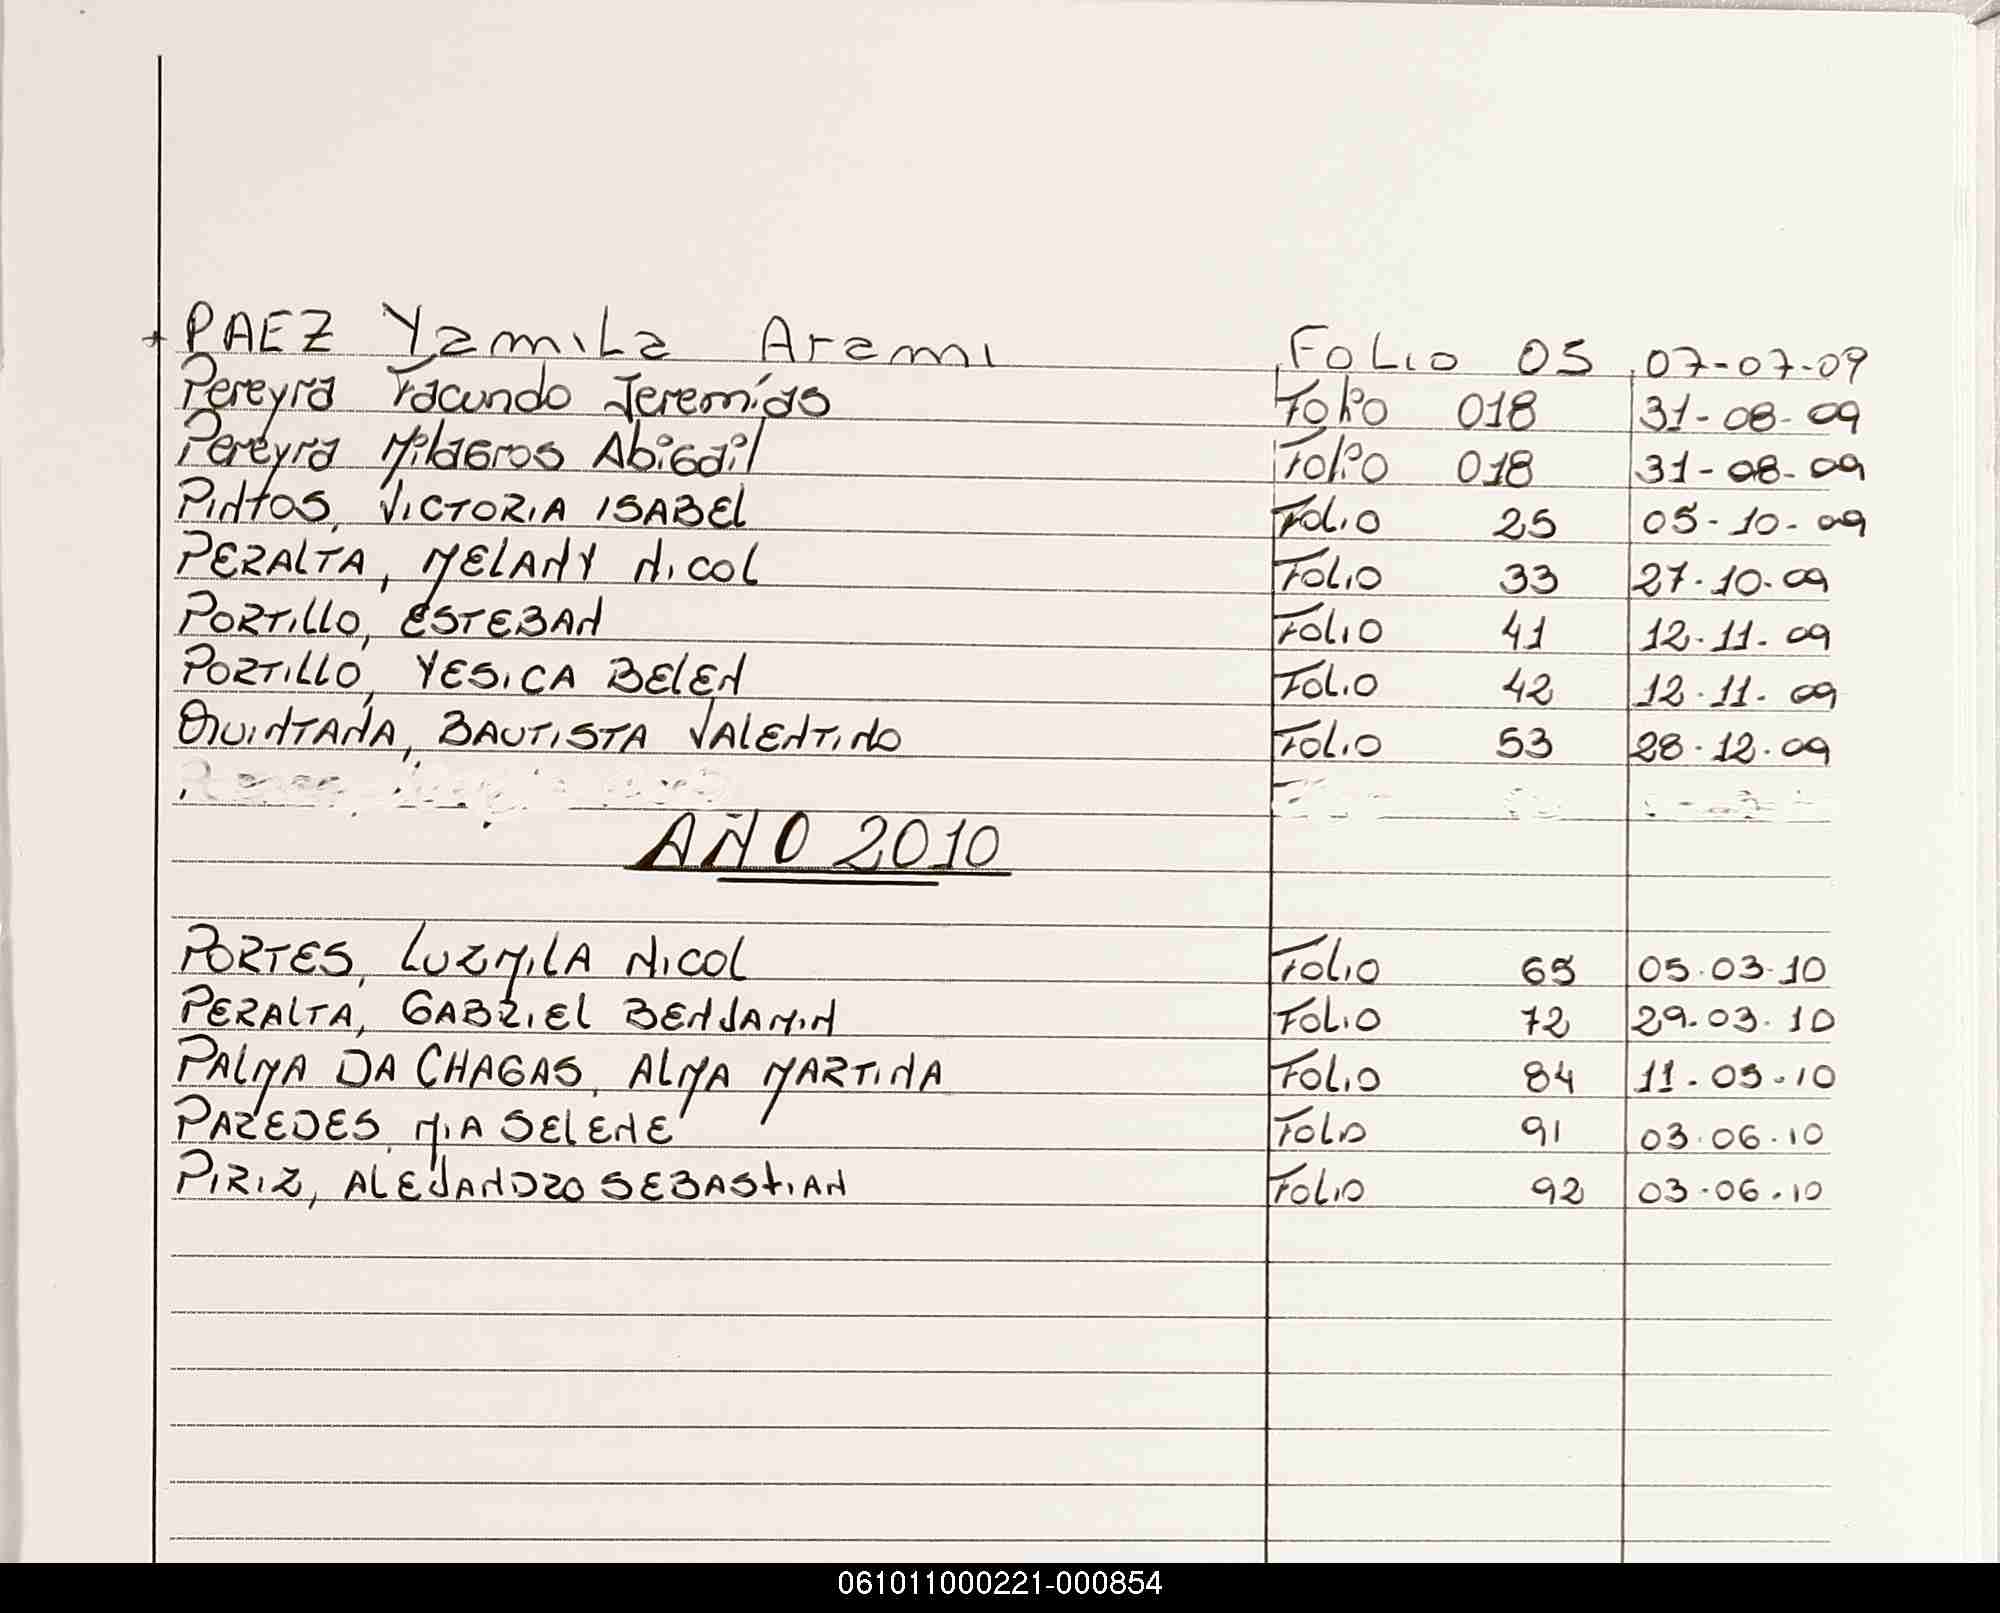 PAEZ Yamila Arami FOLIO 05 07-07-09
Pereyra Facundo Jeremías Folio 018 31-08-09
Pereyra Milagros Abigail Folio 018 31-08-09
PINTOS, VICTORIA ISABEL Folio 25 05-10-09
PERALTA, MELANY NICOL Folio 33 27-10-09
PORTILLO, ESTEBAN Folio 41 12-11-09
PORTILLO, YESICA BELEN Folio 42 12-11-09
QUINTANA, BAUTISTA VALENTINO Folio 53 28-12-09
AÑO 2010
PORTES, LUZMILA NICOL Folio 65 05.03.10
PERALTA, GABRIEL BENJAMIN Folio 72 29.03.10
PALMA DA CHAGAS, ALMA MARTINA Folio 84 11.05.10
PAREDES, MIA SELENE Folio 91 03.06.10
PIRIZ, ALEJANDRO SEBASTIAN Folio 92 03.06.10
061011000221-000854